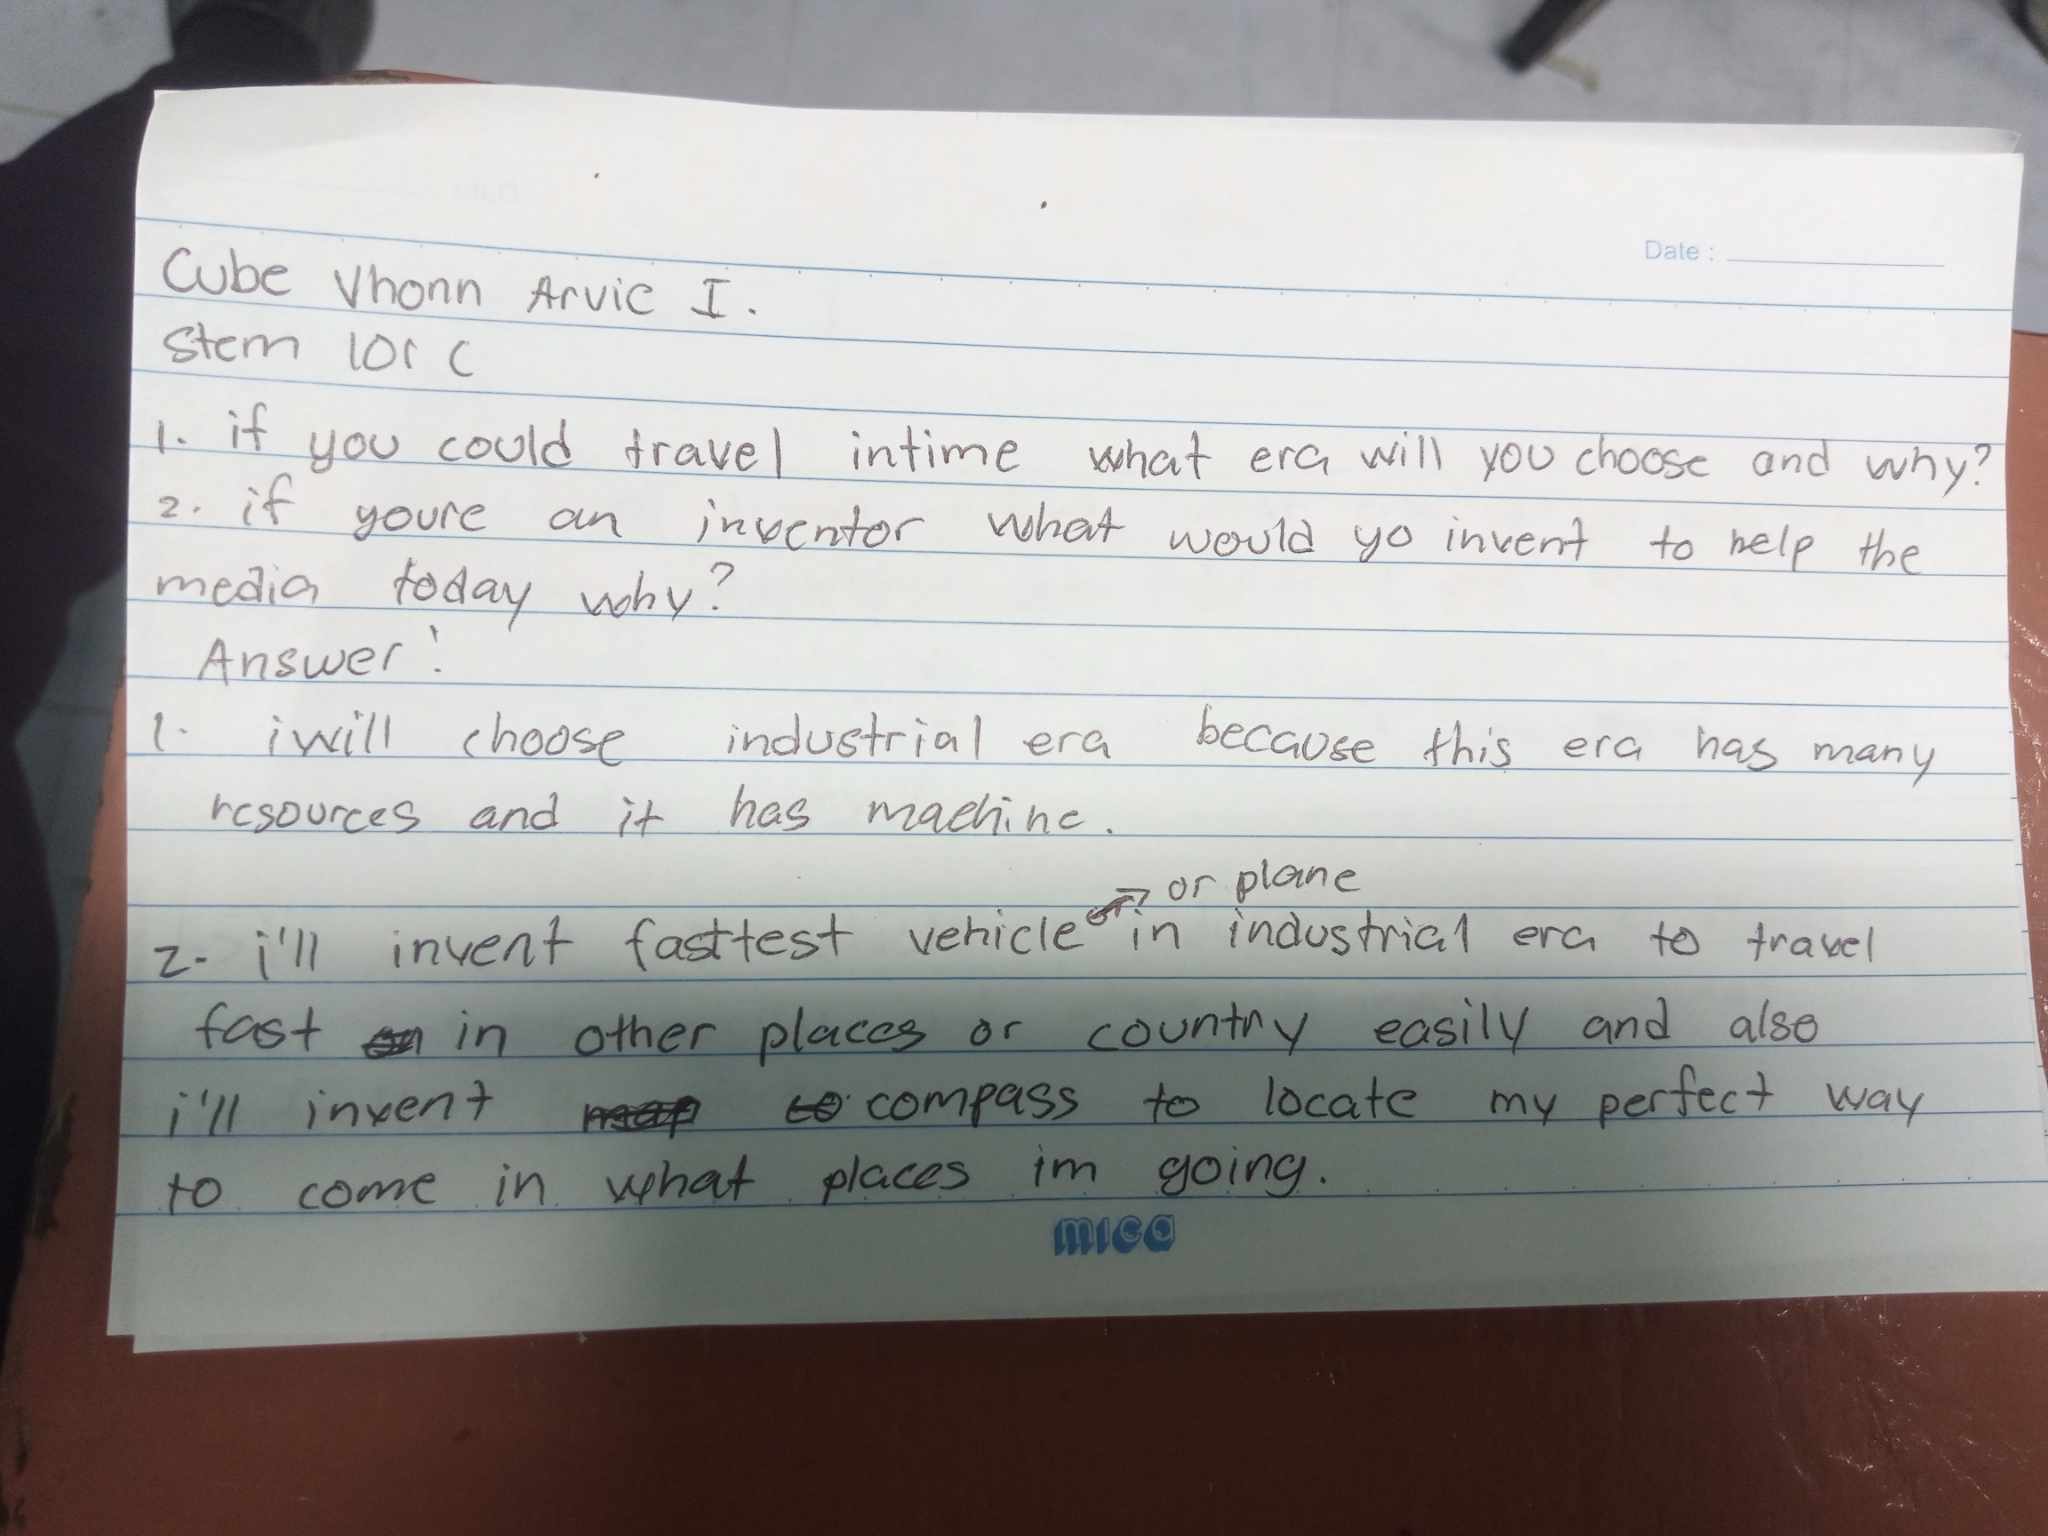 Date :
Cube Vhonn Arvic I.
Stem 101 C
1. if you could travel intime what era will you choose and why?
2. if youre an inventor what would yo invent to help the
media today why?
Answer:
1. i will choose industrial era because this era has many
resources and it has machine.
or plane
2. i'll invent fasttest vehicle in industrial era to travel
fast in other places or country easily and also
i'll invent map to compass to locate my perfect way
to come in what places im going.
mica